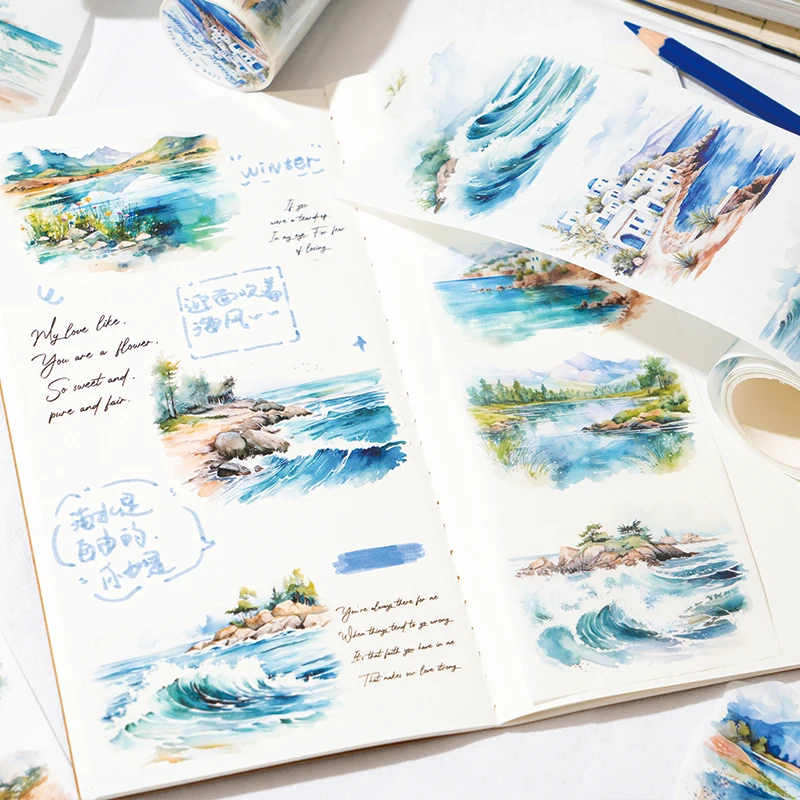 "winter"
If you
were a teardrop
In my eye. For fear
of losing
迎面吹着
海风
My love like.
You are a flower.
So sweet and.
pure and fair.
海水是
自由的.
You're always there for me
When things tend to go wrong
It's that faith you have in me
That makes our love strong